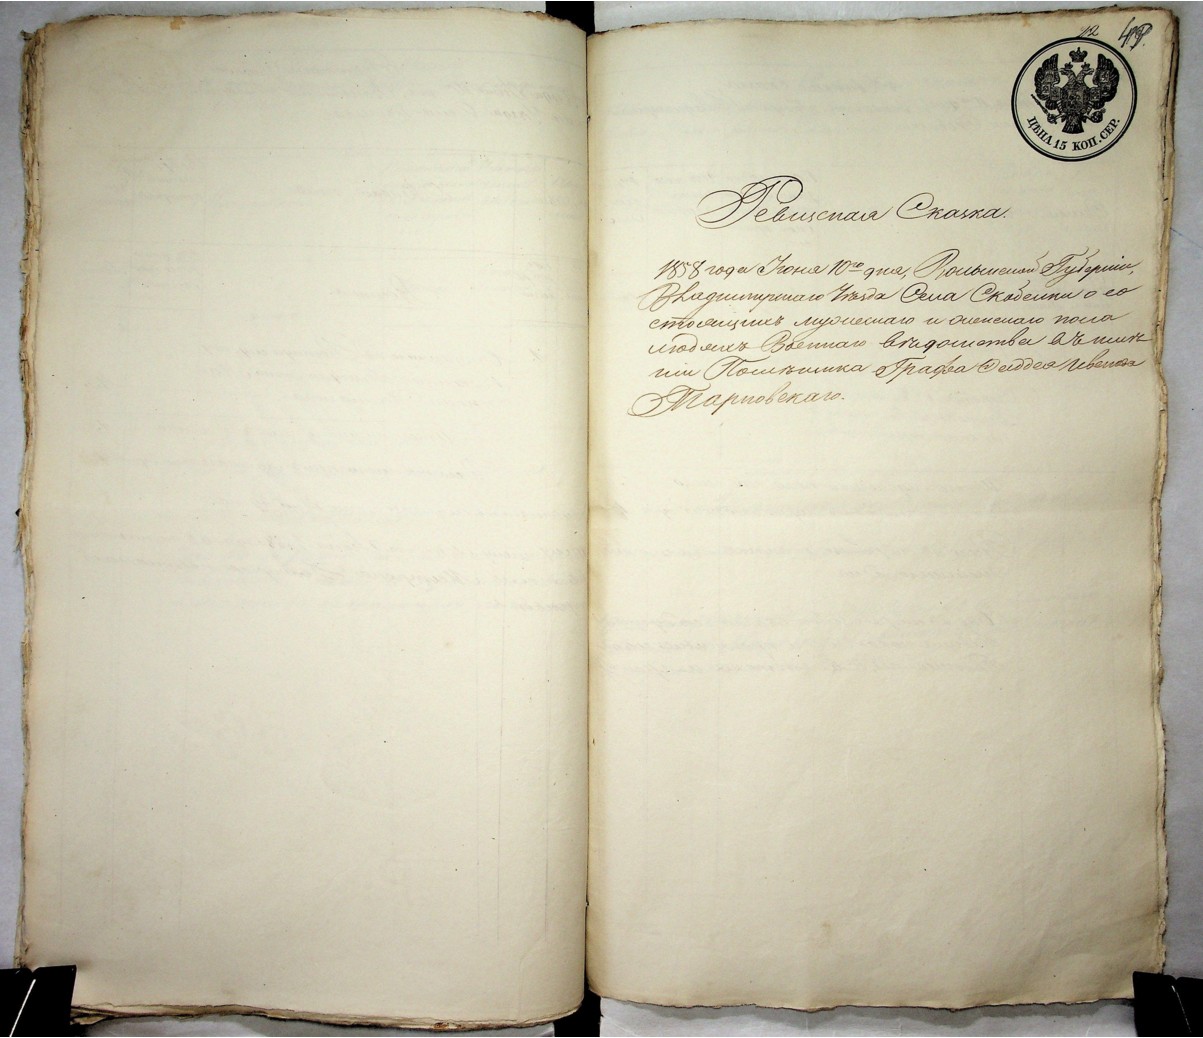 12 49.
ЦѢНА 15 КОП. СЕР.
Ревизская Сказка.
1858 года Іюня 10го дня, Волынской Губерніи,
Владимирскаго Уѣзда Села Скобелки о со
стоящихъ мужескаго и женскаго пола
людяхъ Военнаго вѣдомства въ имѣ
ніи Помѣщика Графа Фаддея
Тарновскаго.